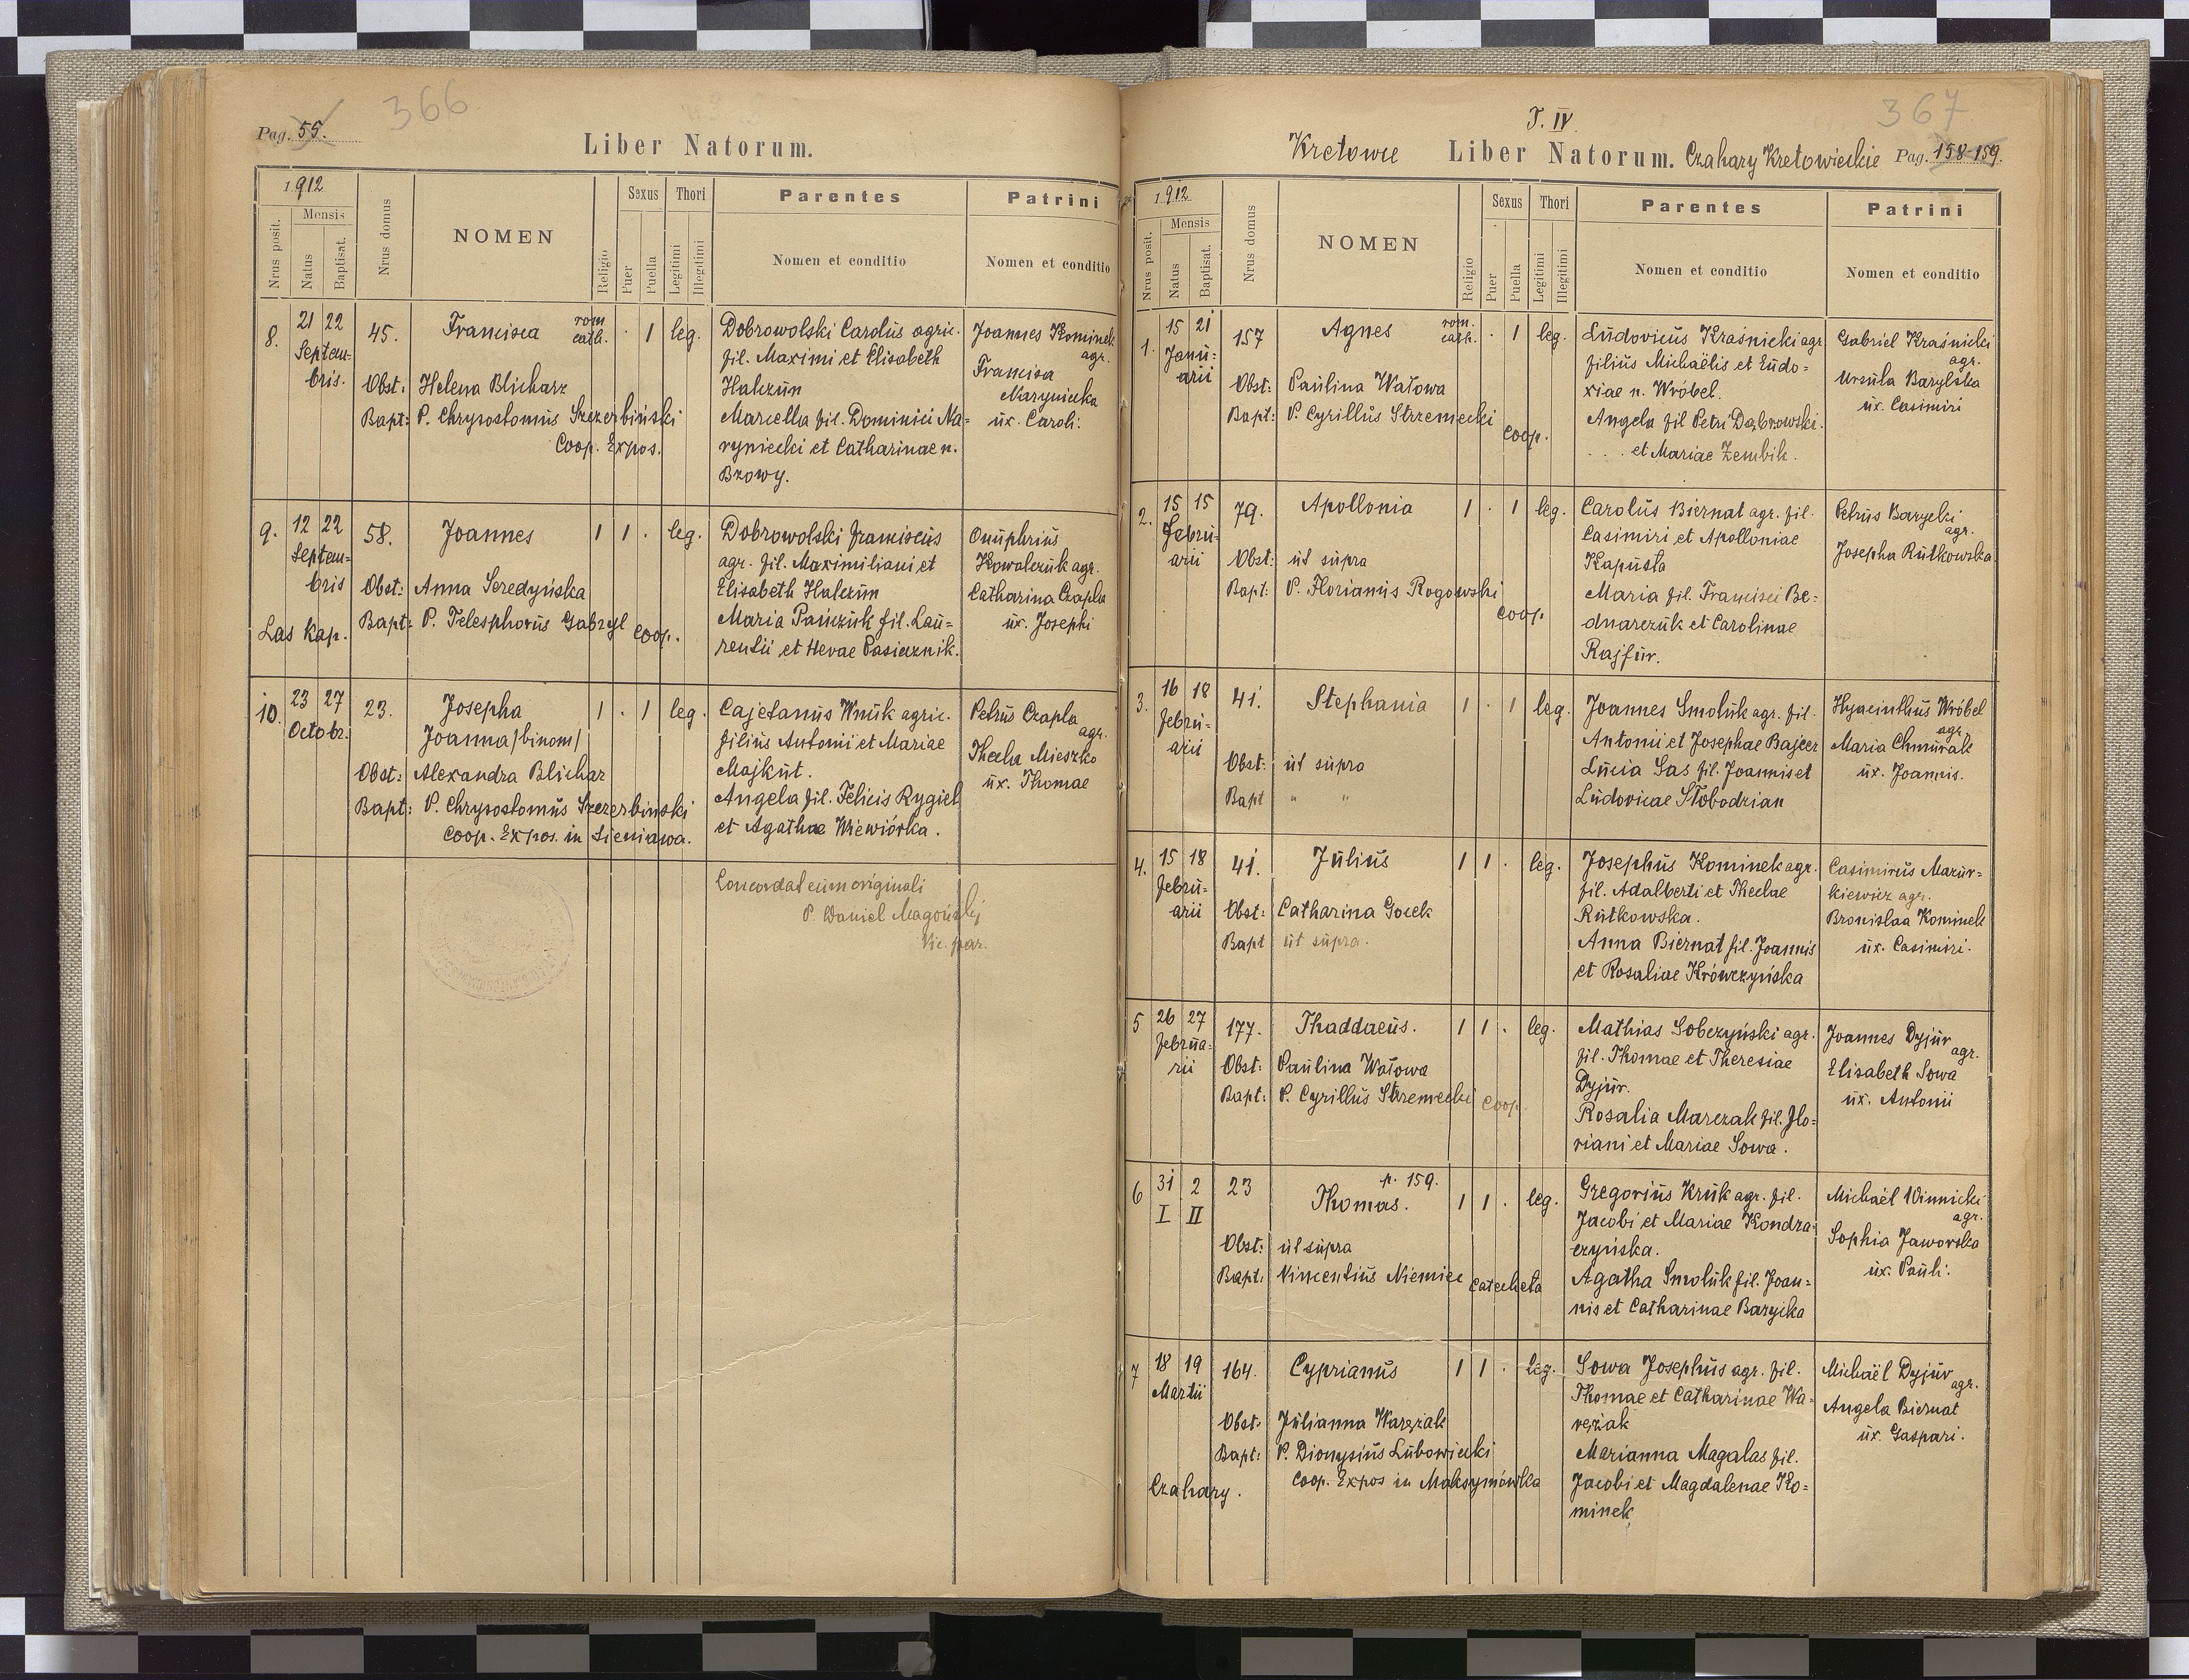 366
Pag. 55.
Liber Natorum.
1912
Nrus posit.
Mensis
Natus
Baptisat.
Nrus domus
NOMEN
Religio
Sexus
Puer
Puella
Thori
Legitimi
Illegitimi
Parentes
Nomen et conditio
Patrini
Nomen et conditio
8. 21 22 45. Francisca rom. cath. · 1 leg.
Septem-
bris.
Obst: Helena Blicharz
Bapt: P. Chrysostomus Szczerbiński
Coop. Expos.
Dobrowolski Carolus agric.
fil. Maximi et Elisabeth
Halczun
Marcella fil. Dominici Na=
ryniecki et Catharinae n.
Bzowy.
Joannes Kominek
agr.
Francisca
Naryniecka
ux. Caroli.
9. 12 22 58. Joannes 1 1 · leg.
Septem-
bris
Obst: Anna Seredyńska
Bapt: P. Telesphorus Gabryl coop.
Las Kap.
Dobrowolski Franciscus
agr. fil. Maximiliani et
Elisabeth Halczun
Maria Pańczuk fil. Lau=
rentii et Hevae Pasiecznik.
Onuphrius
Kowalczuk agr.
Catharina Czapla
ux. Josephi
10. 23 27 23. Josepha 1 · 1 leg.
Octobr. Joanna /binom/
Obst: Alexandra Blichar
Bapt: P. Chrysostomus Szczerbinski
Coop. Expos. in Sieniawa.
Cajetanus Wnuk agric.
filius Antonii et Mariae
Majkut.
Angela fil. Felicis Rygiel
et Agathae Wiewiórka.
Petrus Czapla
agr.
Thecla Mieszko
ux. Thomae
Concordat cum originali
P. Daniel Magoński
Vic. par.
T. IV.
367
Kretowce Liber Natorum. Czahary Kretowieckie Pag. 158-159.
1912
Nrus posit.
Mensis
Natus
Baptisat.
Nrus domus
NOMEN
Religio
Sexus
Puer
Puella
Thori
Legitimi
Illegitimi
Parentes
Nomen et conditio
Patrini
Nomen et conditio
1. 15 21 157 Agnes rom. cath. · 1 leg.
Janu=
arii
Obst: Paulina Watowa
Bapt: P. Cyrillus Strzemecki
coop.
Ludovicus Kraśnicki agr
filius Michaëlis et Eudo=
xiae n. Wróbel.
Angela fil Petri Dąbrowski
et Mariae Zembik.
Gabriel Kraśnicki
agr.
Ursula Barylska
ux. Casimiri
2. 15 15 79. Apollonia 1 · 1 leg.
Febru-
arii
Obst: ut supra
Bapt: P. Florianus Rogowski
coop.
Carolus Biernat agr. fil.
Casimiri et Apolloniae
Kapusta
Maria fil. Francisci Be=
dnarczuk et Carolinae
Rajfur.
Petrus Barycki
agr.
Josepha Rutkowska
3. 16 18 41. Stephania 1 · 1 leg.
Febru-
arii
Obst: ut supra
Bapt " "
Joannes Smoluk agr. fil.
Antonii et Josephae Bajcer
Lucia Sas fil. Joannis et
Ludovicae Słobodzian
Hyacinthus Wróbel
agr.
Maria Chmurak
ux. Joannis.
4. 15 18 41. Julius 1 1 · leg.
Febru-
arii
Obst: Catharina Gocek
Bapt ut supra.
Josephus Kominek agr.
fil. Adalberti et Theclae
Rutkowska.
Anna Biernat fil. Joannis
et Rosaliae Krówczyńska
Casimirus Mazur-
kiewicz agr.
Bronislaa Kominek
ux. Casimiri.
5 26 27 177. Thaddaeus. 1 1 · leg.
Februa-
rii
Obst: Paulina Watowa
Bapt: P. Cyrillus Strzemecki coop.
Mathias Sobczyński agr.
fil. Thomae et Theresiae
Dyjur.
Rosalia Marczak fil. Flo=
riani et Mariae Sowa.
Joannes Dyjur
agr.
Elisabeth Sowa
ux. Antonii
p. 159.
6 31 2 23 Thomas. 1 1 · leg.
I II
Obst: ut supra
Bapt: Vincentius Niemiec Catecheta
Gregorius Kruk agr. fil.
Jacobi et Mariae Kondra-
czyńska.
Agatha Smoluk fil. Joan=
nis et Catharinae Barycka
Michaël Winnicki
agr.
Sophia Jaworska
ux. Pauli.
7 18 19 164. Cyprianus 1 1 · leg.
Martii
Obst: Julianna Warężak
Bapt: P. Dionysius Lubowiecki
Coop. Expos in Maksymówka
Czahary.
Sowa Josephus agr. fil.
Thomae et Catharinae Wa-
rężak
Marianna Magalas fil.
Jacobi et Magdalenae Ko=
minek
Michaël Dyjur
agr.
Angela Biernat
ux. Gaspari.